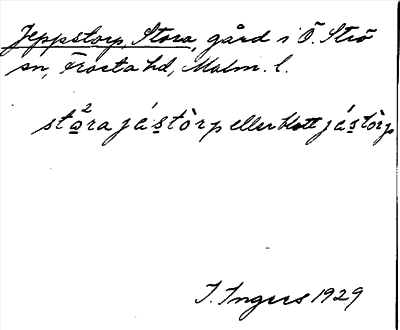 Jeppstorp, Stora, gård i Ö. Strö
sn, Frosta hd, Malm. l.
sta²ra jástòrp eller blott jástòrp
I. Ingers 1929